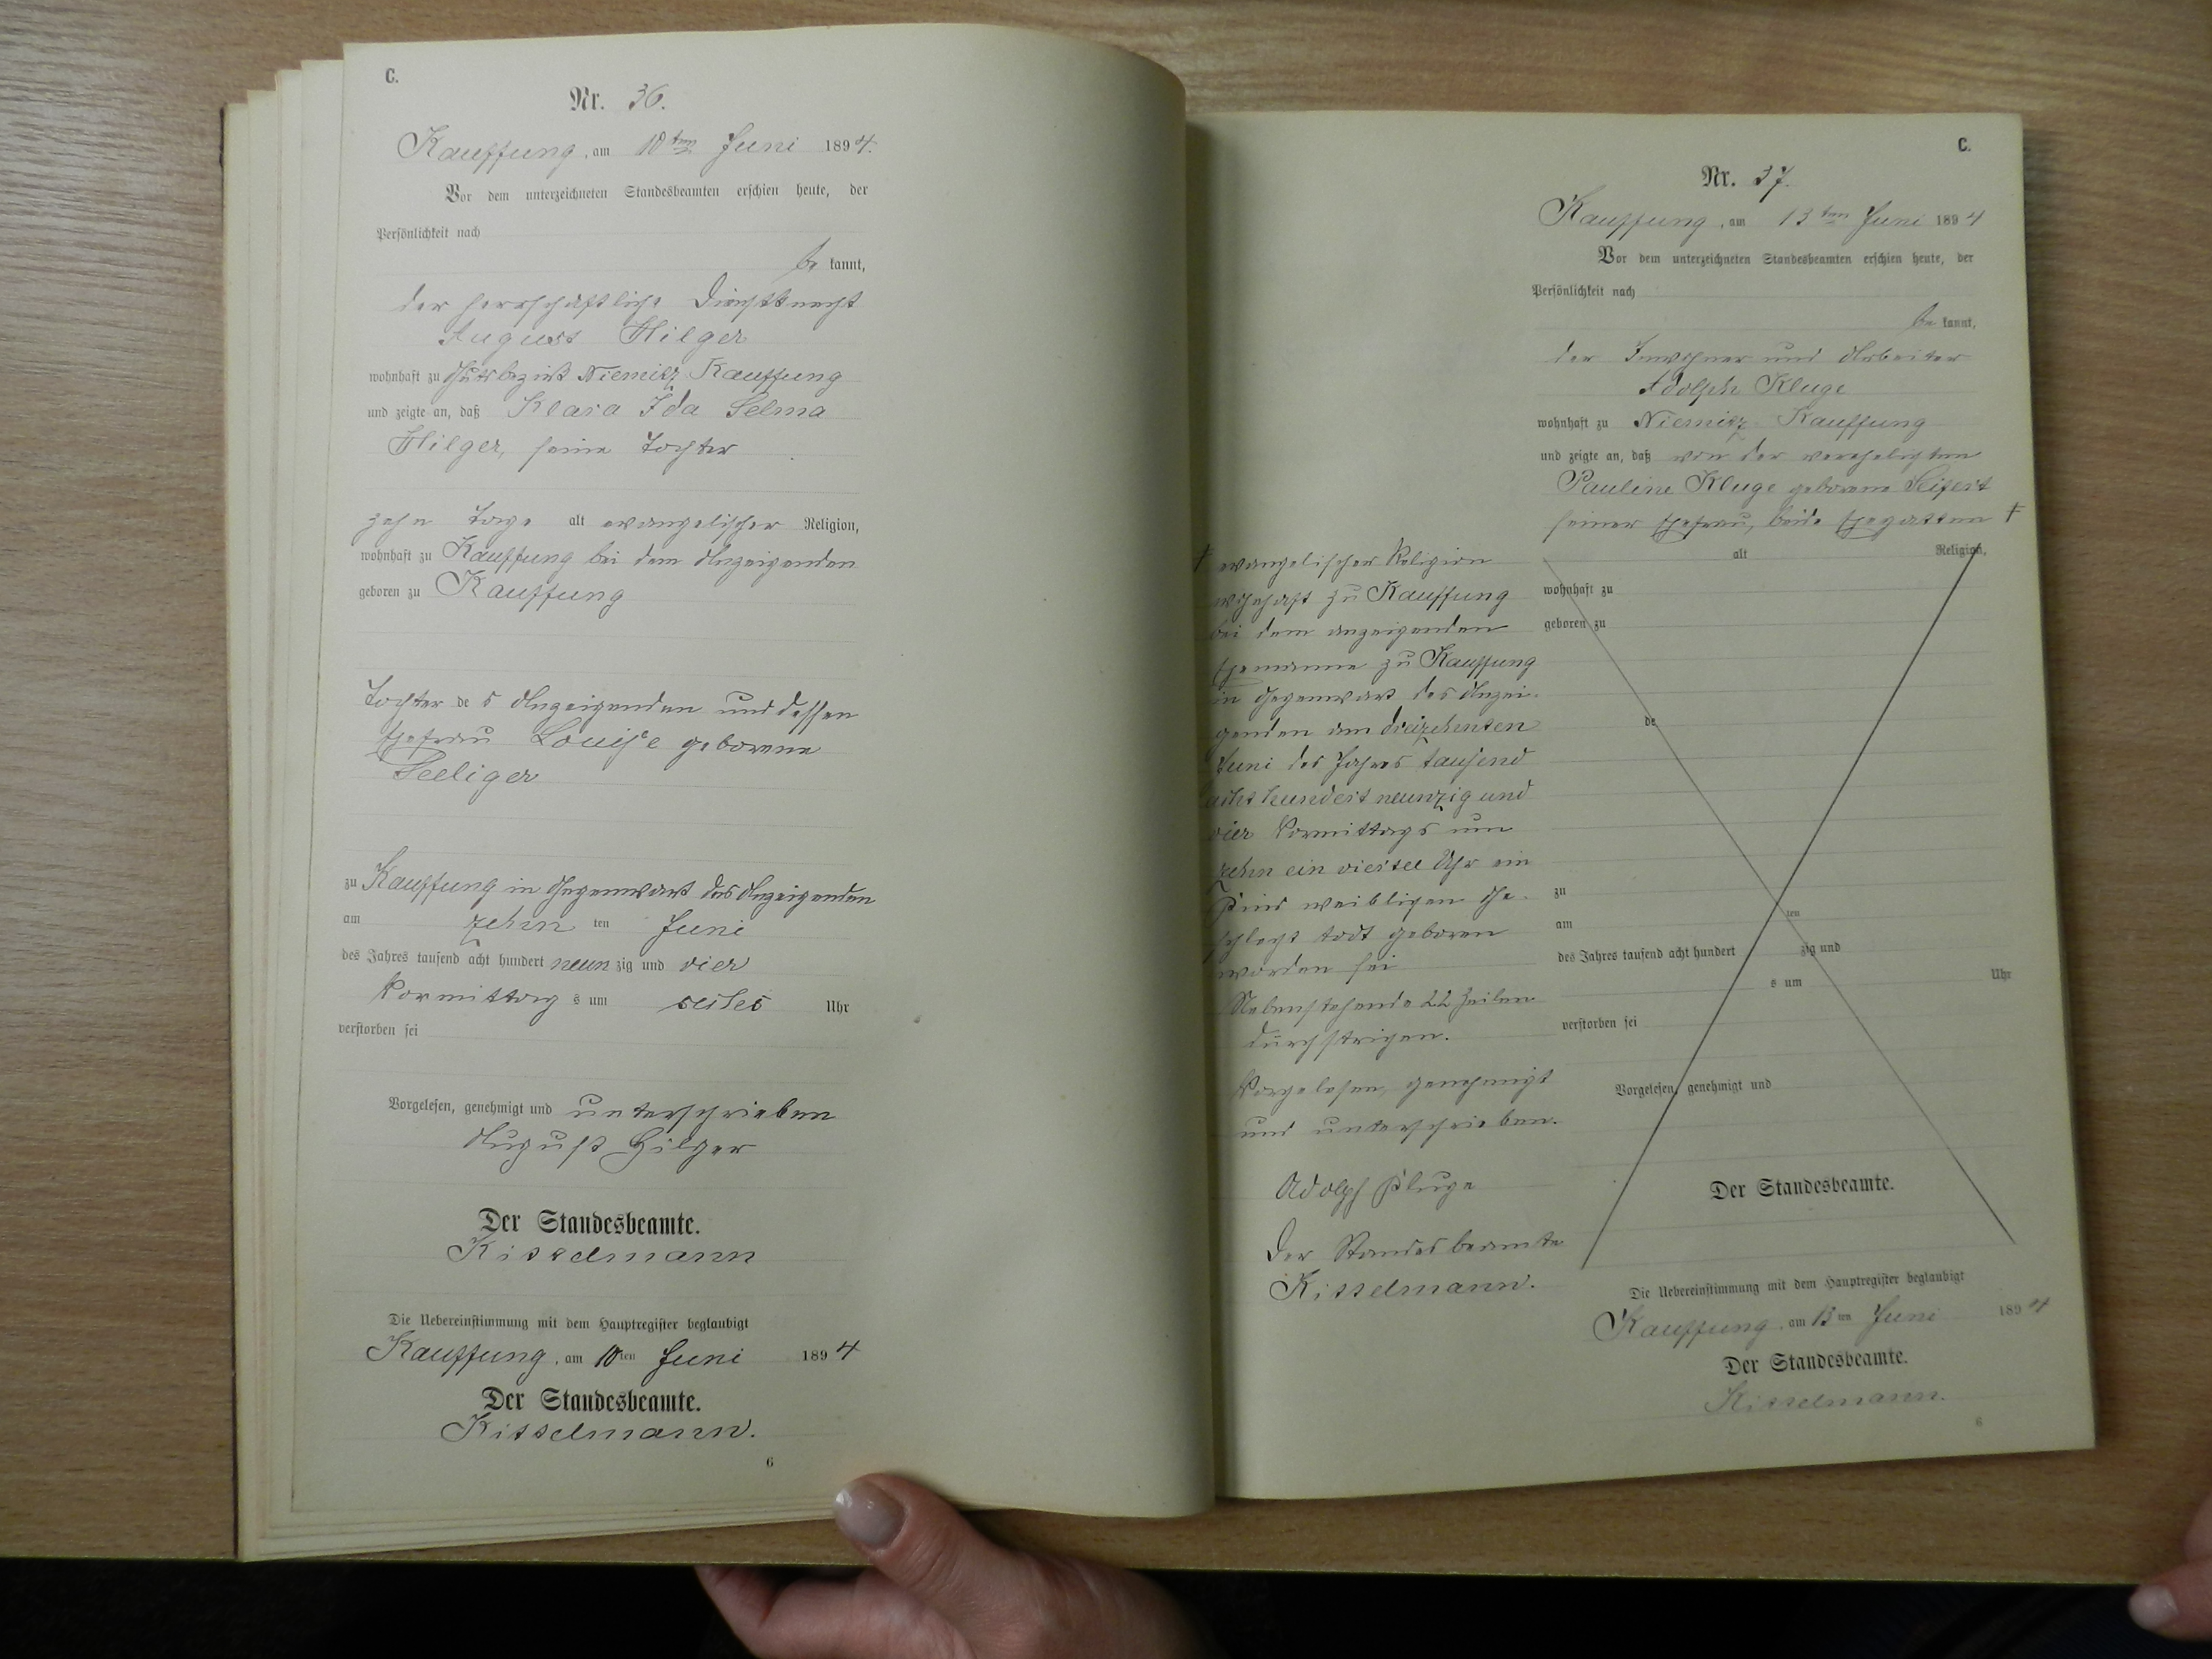 C.
Nr. 36.
Kauffung, am 10ten Juni 1894.
Vor dem unterzeichneten Standesbeamten erschien heute, der
Persönlichkeit nach
be kannt,
der herrschaftliche Dienstknecht
August Hilger
wohnhaft zu Gutsbezirk Niemitz Kauffung
und zeigte an, daß Klara Ida Selma
Hilger, seine Tochter
zehn Tage alt evangelischer Religion,
wohnhaft zu Kauffung bei dem Anzeigenden
geboren zu Kauffung
Tochter des Anzeigenden und dessen
Ehefrau Louise geborene
Seeliger
zu Kauffung in Gegenwart des Anzeigenden
am zehn ten Juni
des Jahres tausend acht hundert neunzig und vier
Vormittags um Uhr
verstorben sei
Vorgelesen, genehmigt und unterschrieben
August Hilger
Der Standesbeamte.
Kisselmann
Die Uebereinstimmung mit dem Hauptregister beglaubigt
Kauffung, am 10ten Juni 1894
Der Standesbeamte.
Kisselmann.
6
C.
Nr. 37.
Kauffung, am 13ten Juni 1894
Vor dem unterzeichneten Standesbeamten erschien heute, der
Persönlichkeit nach
be kannt,
der Inwohner und Arbeiter
Adolph Kluge
wohnhaft zu Niemitz Kauffung
und zeigte an, daß von der verehelichten
Pauline Kluge geborene Seifert
seiner Ehefrau, beide Ehegatten ‡
alt Religion,
wohnhaft zu
geboren zu
de
zu
am ten
des Jahres tausend acht hundert zig und
s um Uhr
verstorben sei
Vorgelesen, genehmigt und
Der Standesbeamte.
‡ evangelischer Religion
wohnhaft zu Kauffung
bei dem anzeigenden
Ehemanne zu Kauffung
in Gegenwart des Anzei-
genden am dreizehnten
Juni des Jahres tausend
acht hundert neunzig und
vier Vormittags um
zehn ein viertel Uhr ein
Kind weiblichen Ge-
schlecht todt geboren
worden sei
Nebenstehende 22 Zeilen
durchstrichen.
Vorgelesen, genehmigt
und unterschrieben.
Adolph Kluge
Der Standesbeamte
Kisselmann.
Die Uebereinstimmung mit dem Hauptregister beglaubigt
Kauffung, am 13ten Juni 1894
Der Standesbeamte.
Kisselmann.
6